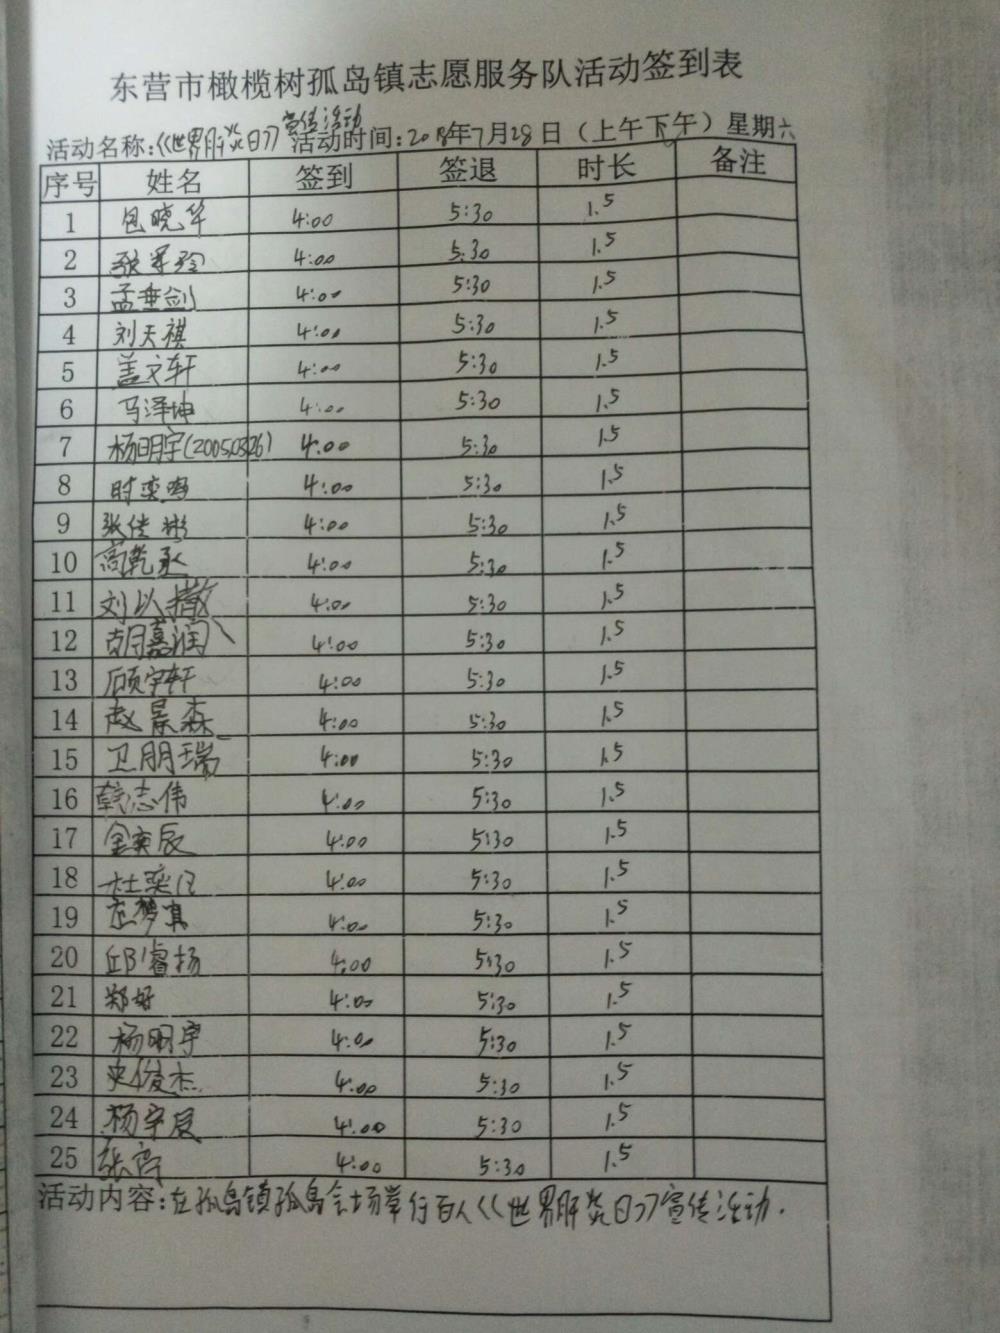 东营市橄榄树孤岛镇志愿服务队活动签到表
活动名称:《世界肝炎日》宣传活动 活动时间:2018年7月28日（上午下午）星期六
序号 姓名 签到 签退 时长 备注
1 包晓华 4:00 5:30 1.5
2 张翠玲 4:00 5:30 1.5
3 孟垂剑 4:00 5:30 1.5
4 刘天祺 4:00 5:30 1.5
5 盖文轩 4:00 5:30 1.5
6 马泽坤 4:00 5:30 1.5
7 杨明宇(20050326) 4:00 5:30 1.5
8 时奕鸣 4:00 5:30 1.5
9 张佳彬 4:00 5:30 1.5
10 高乾丞 4:00 5:30 1.5
11 刘以撒 4:00 5:30 1.5
12 胡嘉润 4:00 5:30 1.5
13 顾宇轩 4:00 5:30 1.5
14 赵景森 4:00 5:30 1.5
15 卫朋瑞 4:00 5:30 1.5
16 韩志伟 4:00 5:30 1.5
17 金奕辰 4:00 5:30 1.5
18 杜奕 4:00 5:30 1.5
19 梦真 4:00 5:30 1.5
20 邱睿扬 4:00 5:30 1.5
21 郑好 4:00 5:30 1.5
22 杨明宇 4:00 5:30 1.5
23 史俊杰 4:00 5:30 1.5
24 杨宇辰 4:00 5:30 1.5
25 张 4:00 5:30 1.5
活动内容:在孤岛镇孤岛会场举行百人《世界肝炎日》宣传活动.